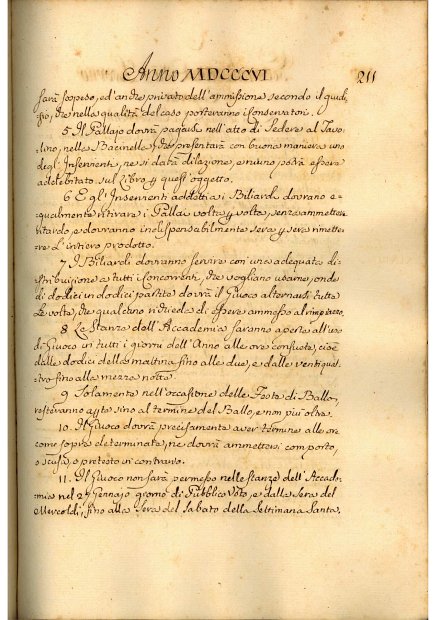 Anno MDCCCVI
211
sarà sospeso, ed'anche privato dell'ammissione secondo il giudi-
zio, che nella qualità del caso porteranno i Conservatori.
5 Il Pallajo dovrà pagarsi nell'atto di Sedere al Tavo-
lino, nella Bacinella, che presentarà con buona maniera uno
degl'Inservienti, ne si darà dilazione, e niuno potrà essere
adebitato sul Libro p quest'oggetto.
6 E gl'Inservienti addetti ai Biliardi dovrano e-
gualmente ritirare i Pallai volta p volta, senza ammettere
ritardo, e dovranno indispensabilmente sera p sera rimette-
re l'intiero prodotto.
7. I Biliardi dovranno servire con una adequata di-
stribuzione a tutti i Concorrenti, che vogliano usarne, onde
di dodici in dodici partite dovrà il Giuoco alternarsi tutte
Le volte, che qualcuno richieda di essere ammesso al
8. Le Stanze dell'Accademia saranno aperte all'uso
di Giuoco in tutti i giorni dell'Anno alle ore consuete, cioè
dalle dodici della mattina fino alle due, e dalle ventiquat-
tro fino alla mezza notte.
9 Solamente nell'occasione delle Feste di Ballo,
resteranno apte sino al termine del Ballo, e non più oltre.
10. Il Giuoco dovrà precisamente aver termine alle ore
come sopra determinate, ne dovrà ammettersi comporto,
o scusa, o pretesto in contrario.
11. Il Giuoco non sarà permesso nelle stanze dell'Accade-
mia nel 2 Gennajo giorno di Pubblico Voto, e dalla Sera del
Mercoldì, fino alla Sera del Sabato della Settimana Santa,